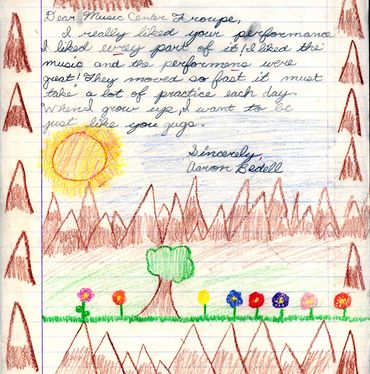 Dear Music Center Troupe,
I really liked your performance
I liked evrey part of it! I liked the
music and the performons were
great! They moved so fast it must
take a lot of practice each day.
When I grow up, I want to be
just like you gugs.
Sincerely,
Aaron Bedell